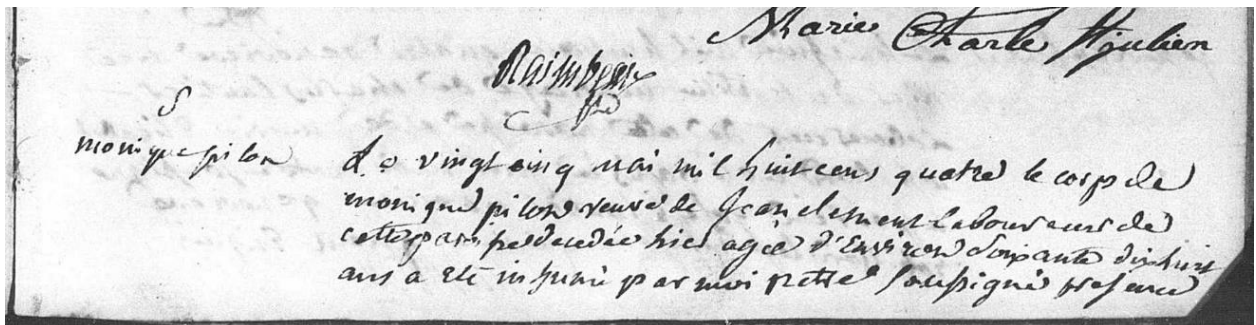 Marie Charle St julien
Raimbau ptre
S
monique pilon
Le vingt cinq mai mil huit cens quatre le corp de
monique pilon veuve de Jean clement laboureur de
cette paroisse decedée hier agée d'Environ Soixante dixhuit
ans a eté inhumé par moi pretre Soussigné presence